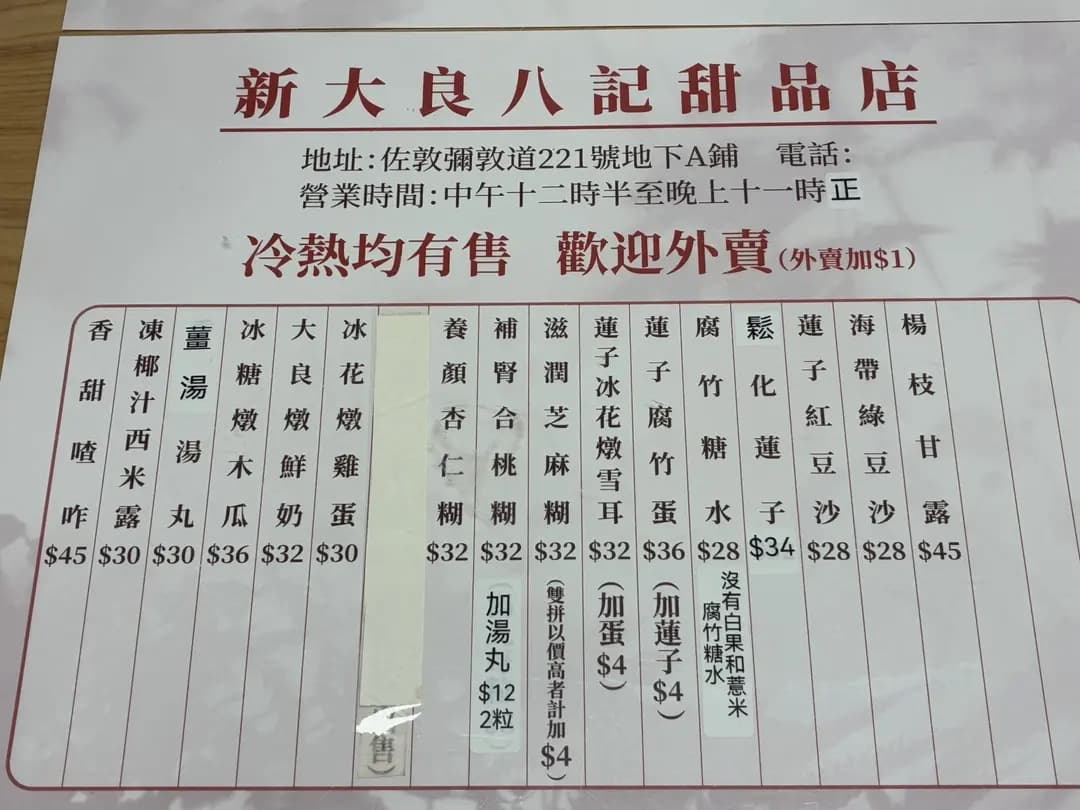 新大良八記甜品店
地址:佐敦彌敦道221號地下A鋪 電話:
營業時間:中午十二時半至晚上十一時正
冷熱均有售 歡迎外賣(外賣加$1)
楊枝甘露 $45
海帶綠豆沙 $28
蓮子紅豆沙 $28
鬆化蓮子 $34
腐竹糖水 $28
沒有白果和薏米
腐竹糖水
蓮子腐竹蛋 $36 (加蓮子$4)
蓮子冰花燉雪耳 $32 (加蛋$4)
滋潤芝麻糊 $32 (雙拼以價高者計加$4)
補腎合桃糊 $32
加湯丸
$12
2粒
養顏杏仁糊 $32
售)
冰花燉雞蛋 $30
大良燉鮮奶 $32
冰糖燉木瓜 $36
薑湯湯丸 $30
凍椰汁西米露 $30
香甜喳咋 $45